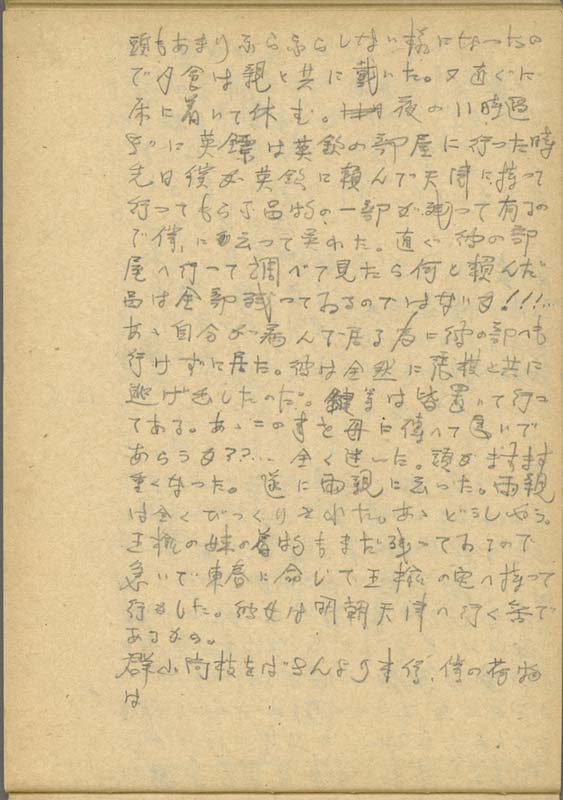 頭もあまりふらふらしない様になったの
で夕食は親と共に戴いた。又直ぐに
床に着いて休む。夜の11時過
ぎに英鏢は英欽の部屋に行った時
先日彼が英欽に頼んで天津に持って
行ってもらう品物の一部が残って有るの
で僕に云って呉れた。直ぐ彼の部
屋へ行って調べて見たら何と頼んだ
品は全部残っておるのではないか!!!...
あゝ自分が病んで居る為に彼の部へも
行けずに居た。彼は全然に張棋と共に
逃げ出したのだ。鍵等は皆置いて行っ
てある。あゝこの事を母に傳へて良いで
あらうか??... 全く迷った。頭がますます
重くなった。遂に両親に云った。両親
は全くびっくりされた。あゝどうしやう。
玉 の妹の着物もまだ残っておるので
急いで東 に命じて玉 の宅へ持って
行かした。彼女は明朝天津へ行く筈で
あるから。
群山 枝をば 僕の荷物
は